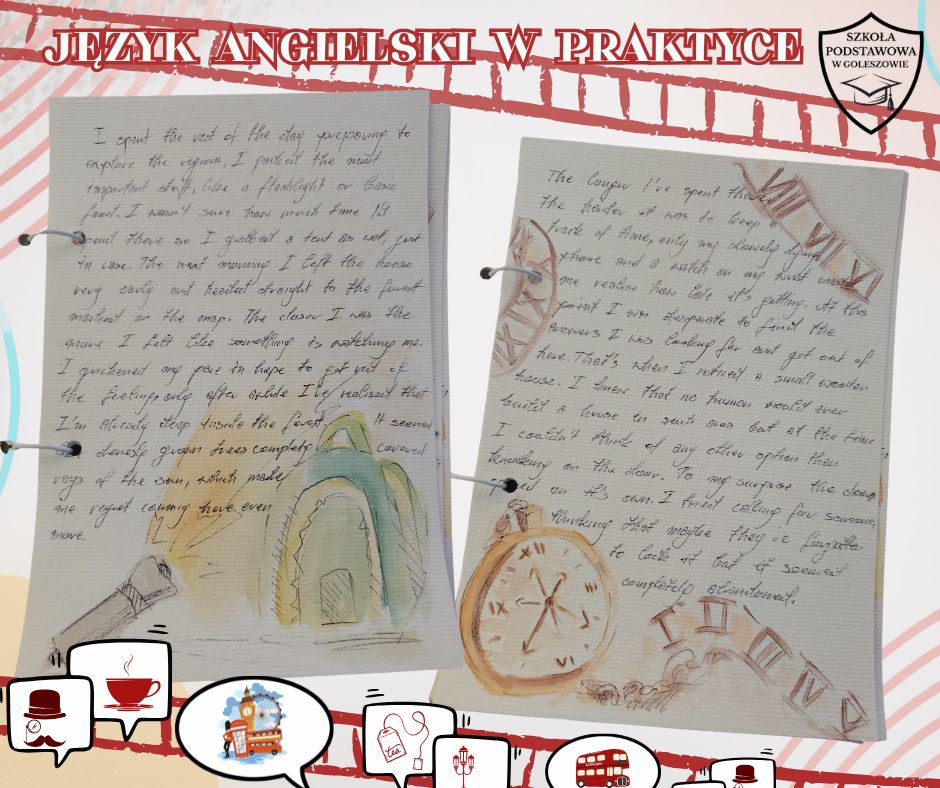 JĘZYK ANGIELSKI W PRAKTYCE
SZKOŁA
PODSTAWOWA
W GOLESZOWIE
I spent the rest of the day preparing to
explore the regions, I packed the most
important stuff, like a flashlight or basic
food. I wasn't sure how much time I'd
spent there so I grabbed a tent as well, just
in case. The next morning I left the house
very early and headed straight to the forest
marked on the map. The closer I was the
more I felt like something is watching me.
I quickened my pace in hope to get rid of
the feeling, only after awhile I've realised that
I'm already deep inside the forest. It seemed
densely grown trees completely covered
rays of the sun, which made
me regret coming here even
more.
The longer I've spent there,
the harder it was to keep a
track of time, only my slowly dying
phone and a watch on my wrist made
me realise how late it's getting. At this
point I was desperate to find the
answers I was looking for and get out of
here. That's when I noticed a small wooden
house. I knew that no human would ever
build a house in such area but at the time
I couldn't think of any other option than
knocking on the door. To my surprise the doors
on it's own. I tried calling for someone,
thinking that maybe they've forgotten
to lock it but it seemed
completely abandoned.
VIII VII VI
XII
IX
VI
I II III IV V
tea
LONDON